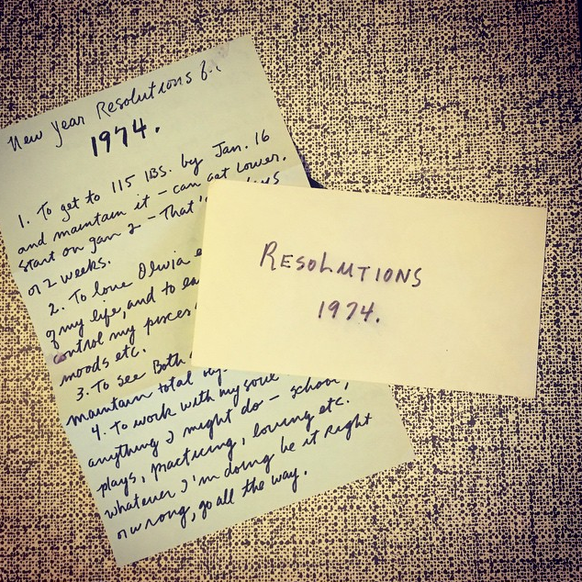 New Year Resolutions f..
1974.
1. To get to 115 lbs. by Jan. 16
and maintain it – can get lower.
start on Jan 2 – That's days
or 2 weeks.
2. To love Olivia
of my life, and to ea
control my pisces
moods etc.
3. To see Both
maintain total
4. To work with my soul
anything I might do – school,
plays, practicing, loving etc.
whatever I'm doing be it right
or wrong, go all the way.
RESOLUTIONS
1974.